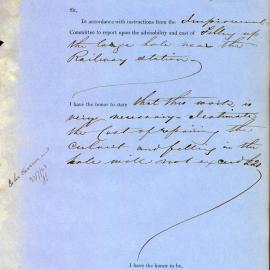 Sir,
In accordance with instructions from the Improvement
Committee to report upon the advisability and cost of filling up
the large hole near the
Railway station
I have the honor to state that this work is
very necessary I estimate
the cost of repairing the
culvert and filling in the
hole will not exceed £20
I have the honor to be,